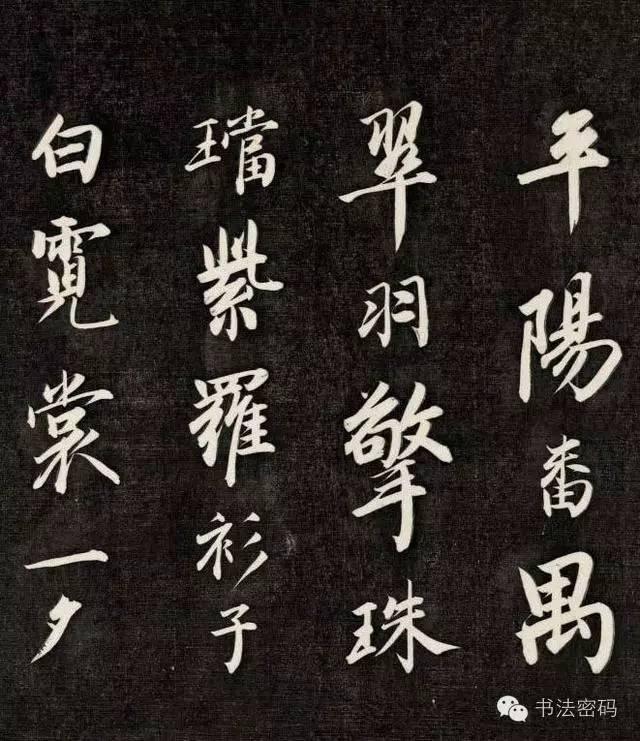 平陽番禺
翠羽擎珠
璫紫羅衫子
白霓裳一夕
书法密码